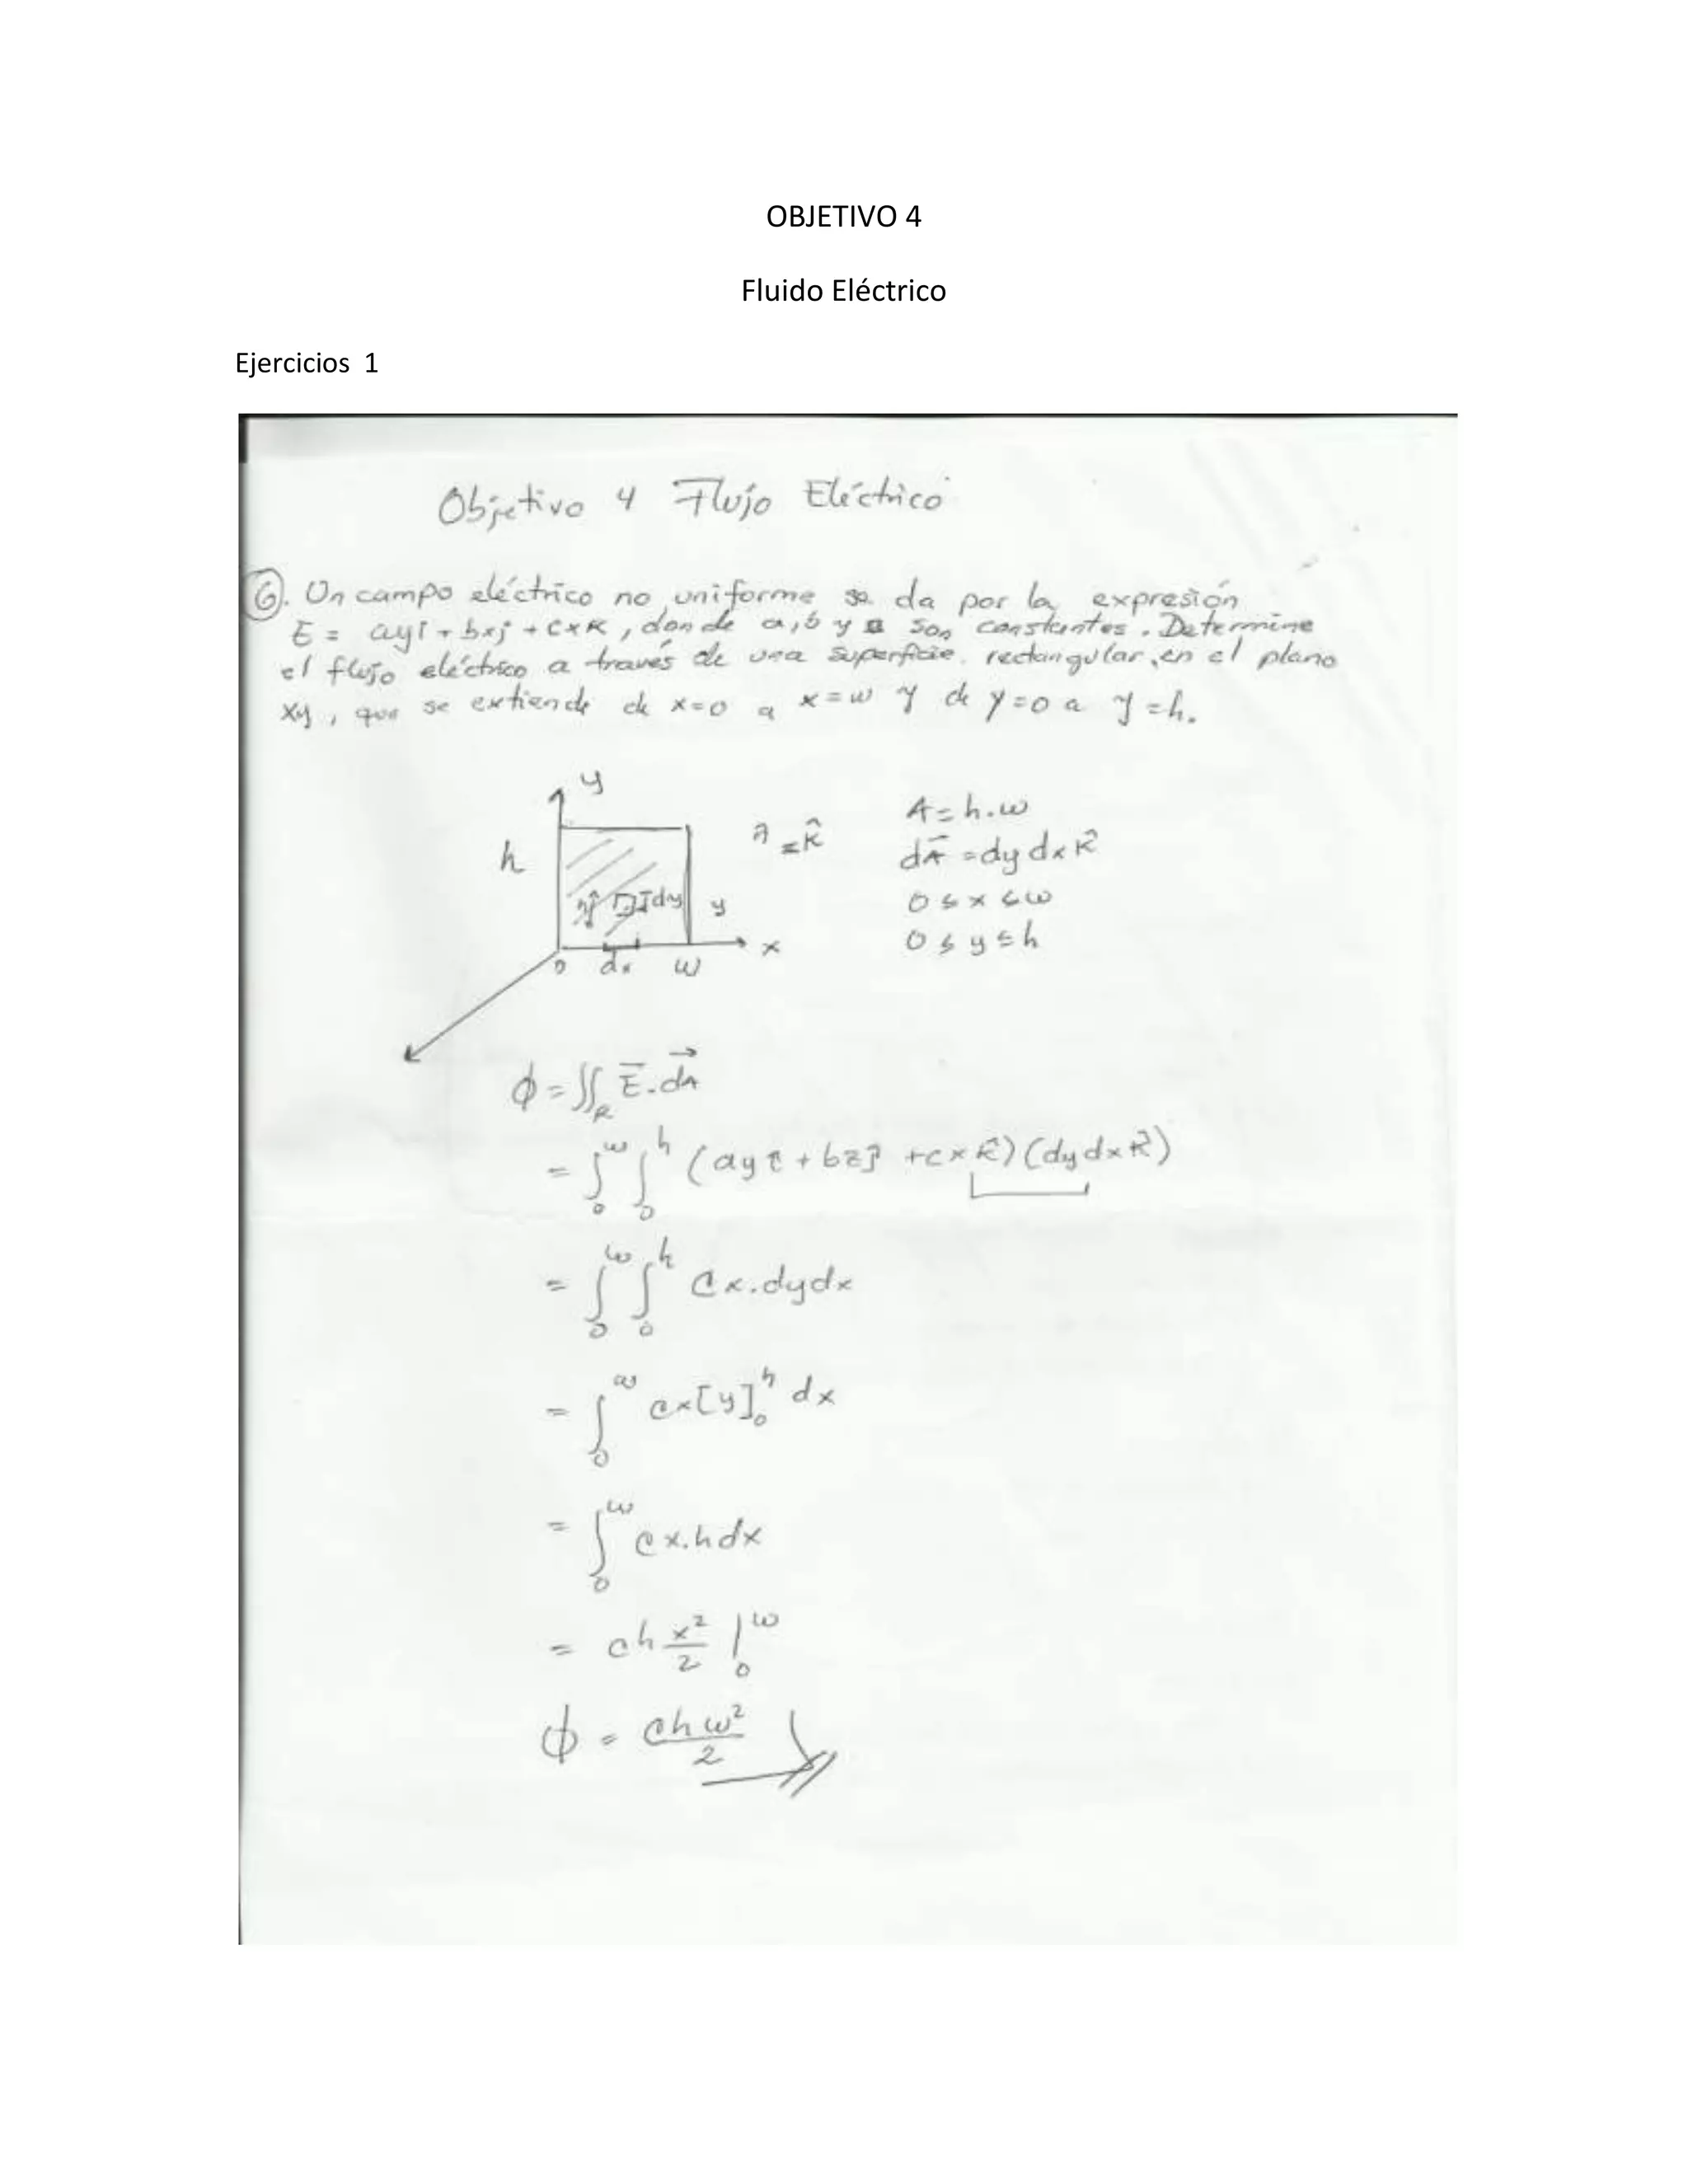 OBJETIVO 4
Fluido Eléctrico
Ejercicios 1
Objetivo 4 Flujo Eléctrico
⑥. Un campo eléctrico no uniforme se da por la expresión
E = ayî + bxj + cxk, donde a, b y c son constantes. Determine
el flujo eléctrico a través de una superficie rectangular, en el plano
xy, que se extiende de x=0 a x=w y de y=0 a y=h.
y
h
n̂ = k̂
A = h.w
dA⃗ = dy dx k̂
0 ≤ x ≤ w
0 ≤ y ≤ h
n̂ dy y
0 dx w x
ϕ = ∬_R E⃗.dA⃗
= ∫₀^w ∫₀^h (ay î + bz ĵ + cx k̂)(dy dx k̂)
= ∫₀^w ∫₀^h cx.dydx
= ∫₀^w cx[y]₀^h dx
= ∫₀^w cx.hdx
= ch x²/2 |₀^w
ϕ = chw²/2